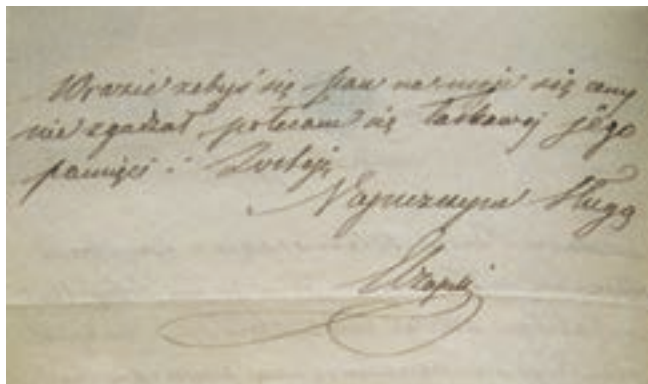 W razie żebyś się pan na moje się ceny
nie zgadzał polecam się łaskawej jego
pamięci i Zostaję
Najniższym Sługą